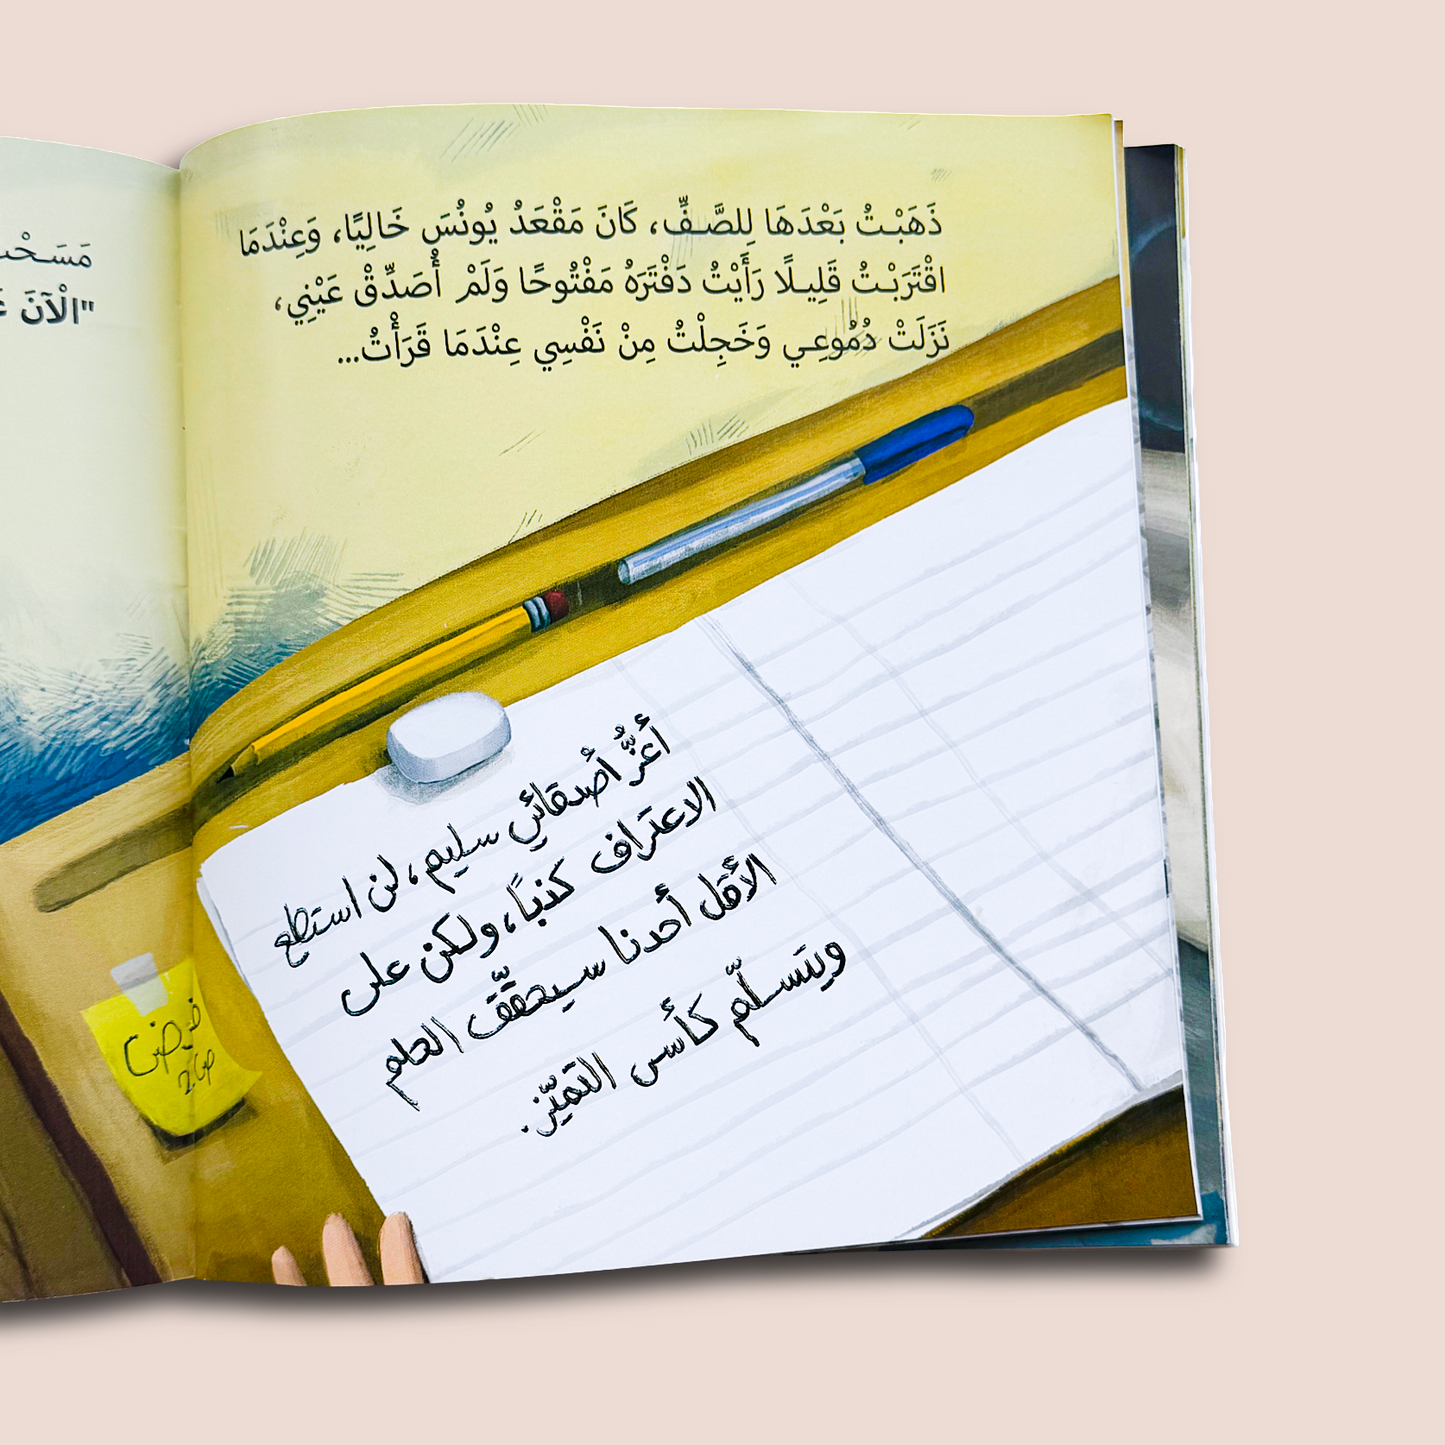 ذَهَبْتُ بَعْدَهَا لِلصَّفِّ، كَانَ مَقْعَدُ يُونُسَ خَالِيًا، وَعِنْدَمَا
اقْتَرَبْتُ قَلِيلًا رَأَيْتُ دَفْتَرَهُ مَفْتُوحًا وَلَمْ أُصَدِّقْ عَيْنِي،
نَزَلَتْ دُمُوعِي وَخَجِلْتُ مِنْ نَفْسِي عِنْدَمَا قَرَأْتُ...
أعزُّ أصدقائي سليم، لن استطع
الاعتراف كذبًا، ولكن على
الأقل أحدنا سيحقّق الحلم
ويتسلّم كأس التميّز.
مَسَحْت
"الْآنَ
ص2